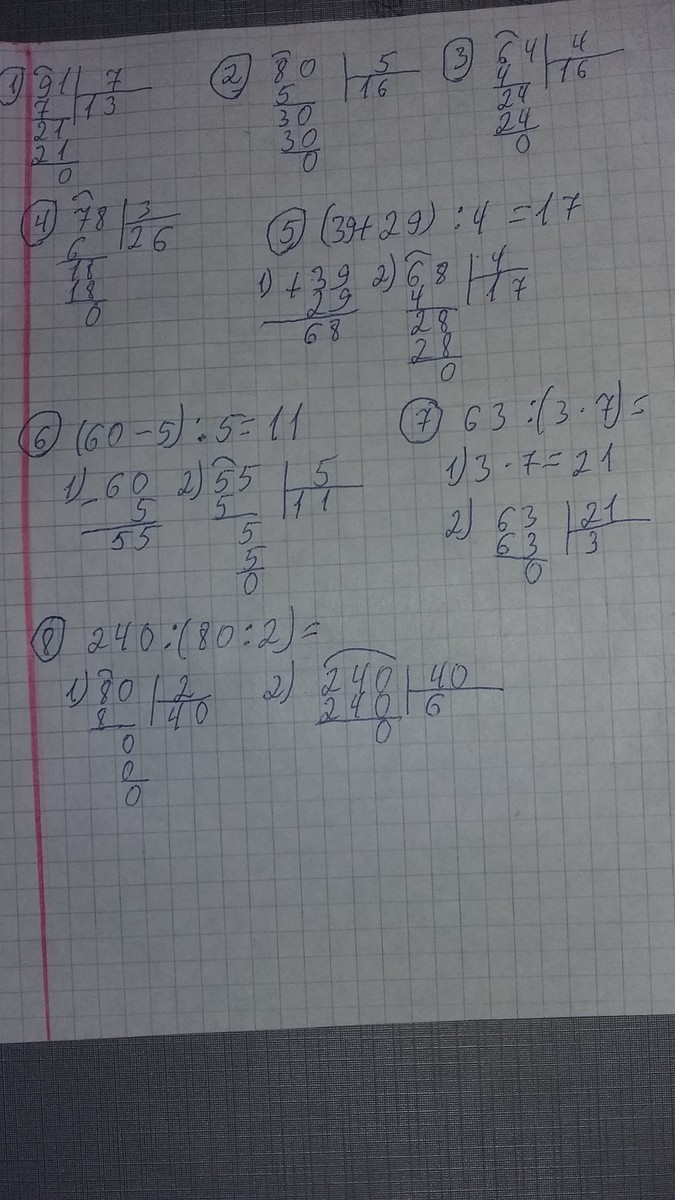 ① 91 | 7
7 | 13
21
21
0
② 80 | 5
5 | 16
30
30
0
③ 64 | 4
4 | 16
24
24
0
④ 78 | 3
6 | 26
18
18
0
⑤ (39+29) : 4 = 17
1) + 39
29
68
2) 68 | 4
4 | 17
28
28
0
⑥ (60-5) : 5 = 11
1) - 60
5
55
2) 55 | 5
5 | 11
5
5
0
⑦ 63 : (3 · 7) =
1) 3 · 7 = 21
2) 63 | 21
63 | 3
0
⑧ 240 : (80 : 2) =
1) 80 | 2
8 | 40
0
0
0
2) 240 | 40
240 | 6
0